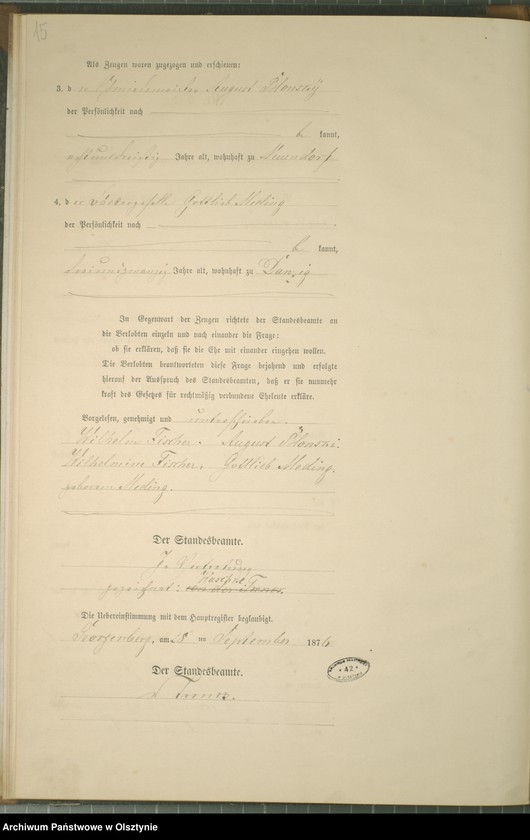 15
Als Zeugen waren zugezogen und erschienen:
3. d er August Plonsky
der Persönlichkeit nach
be kannt,
achtunddreißig Jahre alt, wohnhaft zu Neuendorf
4. d er Gottlieb Meding
der Persönlichkeit nach
be kannt,
dreiundzwanzig Jahre alt, wohnhaft zu Danzig
In Gegenwart der Zeugen richtete der Standesbeamte an
die Verlobten einzeln und nach einander die Frage:
ob sie erklären, daß sie die Ehe mit einander eingehen wollen.
Die Verlobten beantworteten diese Frage bejahend und erfolgte
hierauf der Ausspruch des Standesbeamten, daß er sie nunmehr
kraft des Gesetzes für rechtmäßig verbundene Eheleute erkläre.
Vorgelesen, genehmigt und unterschrieben.
Wilhelm Fischer. August Plonski.
Wilhelmine Fischer, Gottlieb Meding.
geborene Meding.
Der Standesbeamte.
In Vertretung
gezeichnet:
Die Uebereinstimmung mit dem Hauptregister beglaubigt.
am 18 ten September 1876
Der Standesbeamte.
42
Archiwum Państwowe w Olsztynie